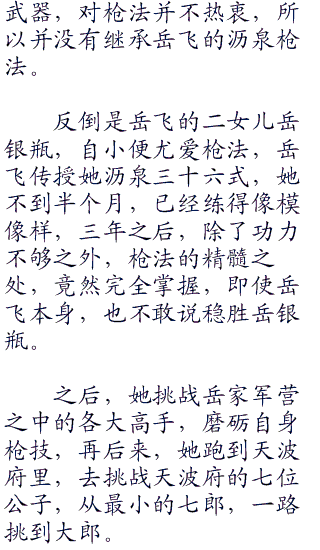 武器，对枪法并不热衷，所
以并没有继承岳飞的沥泉枪
法。
反倒是岳飞的二女儿岳
银瓶，自小便尤爱枪法，岳
飞传授她沥泉三十六式，她
不到半个月，已经练得像模
像样，三年之后，除了功力
不够之外，枪法的精髓之
处，竟然完全掌握，即使岳
飞本身，也不敢说稳胜岳银
瓶。
之后，她挑战岳家军营
之中的各大高手，磨砺自身
枪技，再后来，她跑到天波
府里，去挑战天波府的七位
公子，从最小的七郎，一路
挑到大郎。